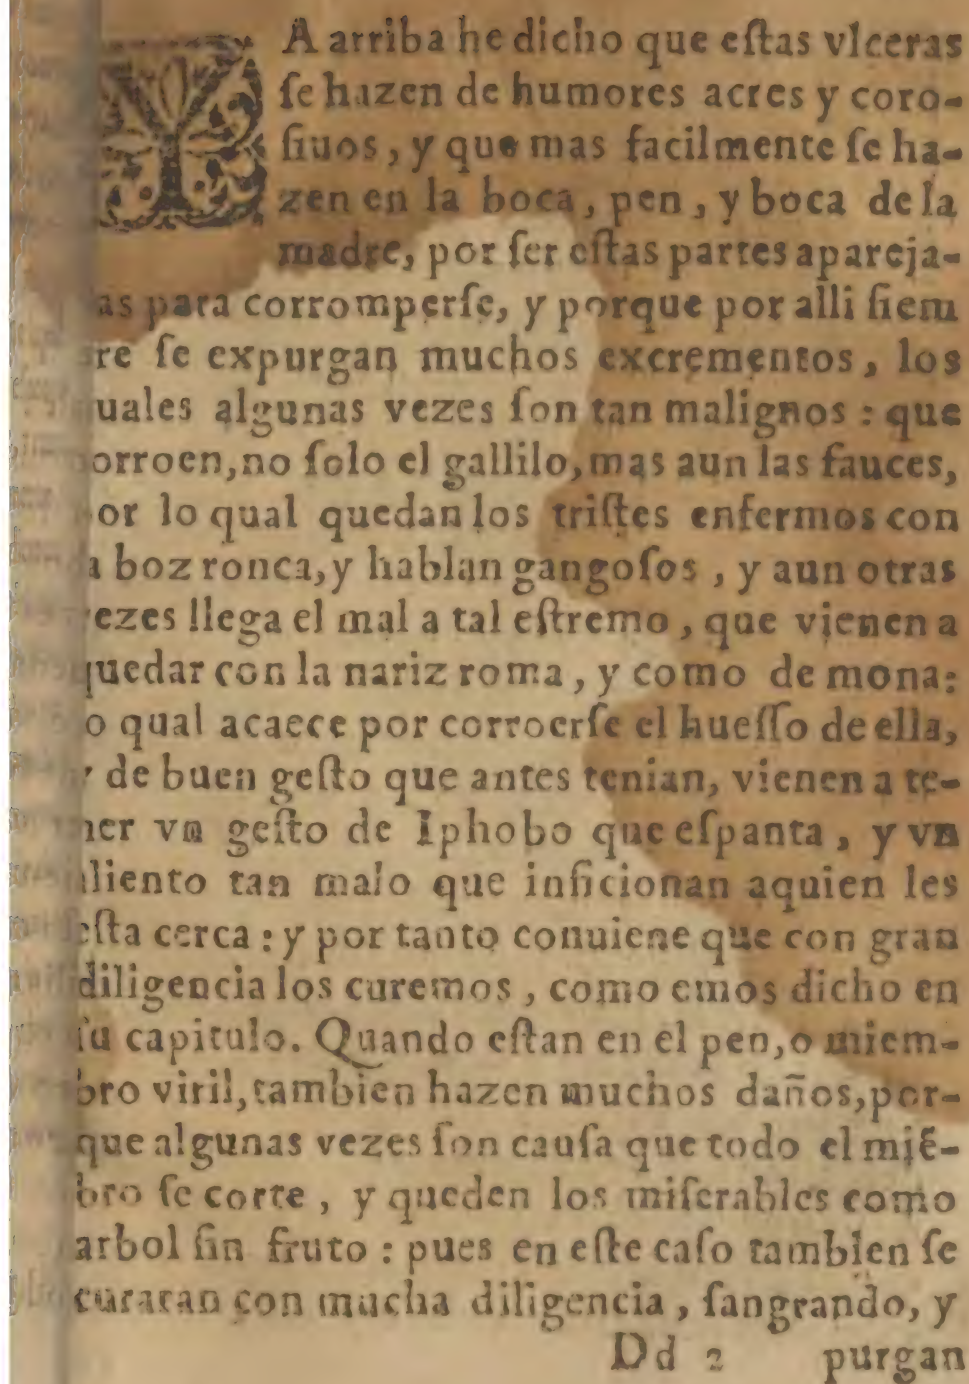 YA arriba he dicho que eſtas vlceras
ſe hazen de humores acres y coro-
ſiuos, y que mas facilmente ſe ha-
zen en la boca, pen, y boca de la
madre, por ſer eſtas partes apareja-
as para corromperſe, y porque por alli ſiem
re ſe expurgan muchos excrementos, los
uales algunas vezes ſon tan malignos : que
orroen, no ſolo el gallilo, mas aun las fauces,
or lo qual quedan los triſtes enfermos con
a boz ronca, y hablan gangoſos, y aun otras
ezes llega el mal a tal eſtremo, que vienen a
quedar con la nariz roma, y como de mona:
o qual acaece por corroerſe el hueſſo de ella,
y de buen geſto que antes tenian, vienen a te-
ner vn geſto de Iphobo que eſpanta, y vn
aliento tan malo que inficionan aquien les
eſta cerca : y por tanto conuiene que con gran
diligencia los curemos, como emos dicho en
ſu capitulo. Quando eſtan en el pen, o miem-
bro viril, tambien hazen muchos daños, por-
que algunas vezes ſon cauſa que todo el miẽ-
bro ſe corte, y queden los miſerables como
arbol ſin fruto : pues en eſte caſo tambien ſe
curaran con mucha diligencia, ſangrando, y
Dd 2 purgan